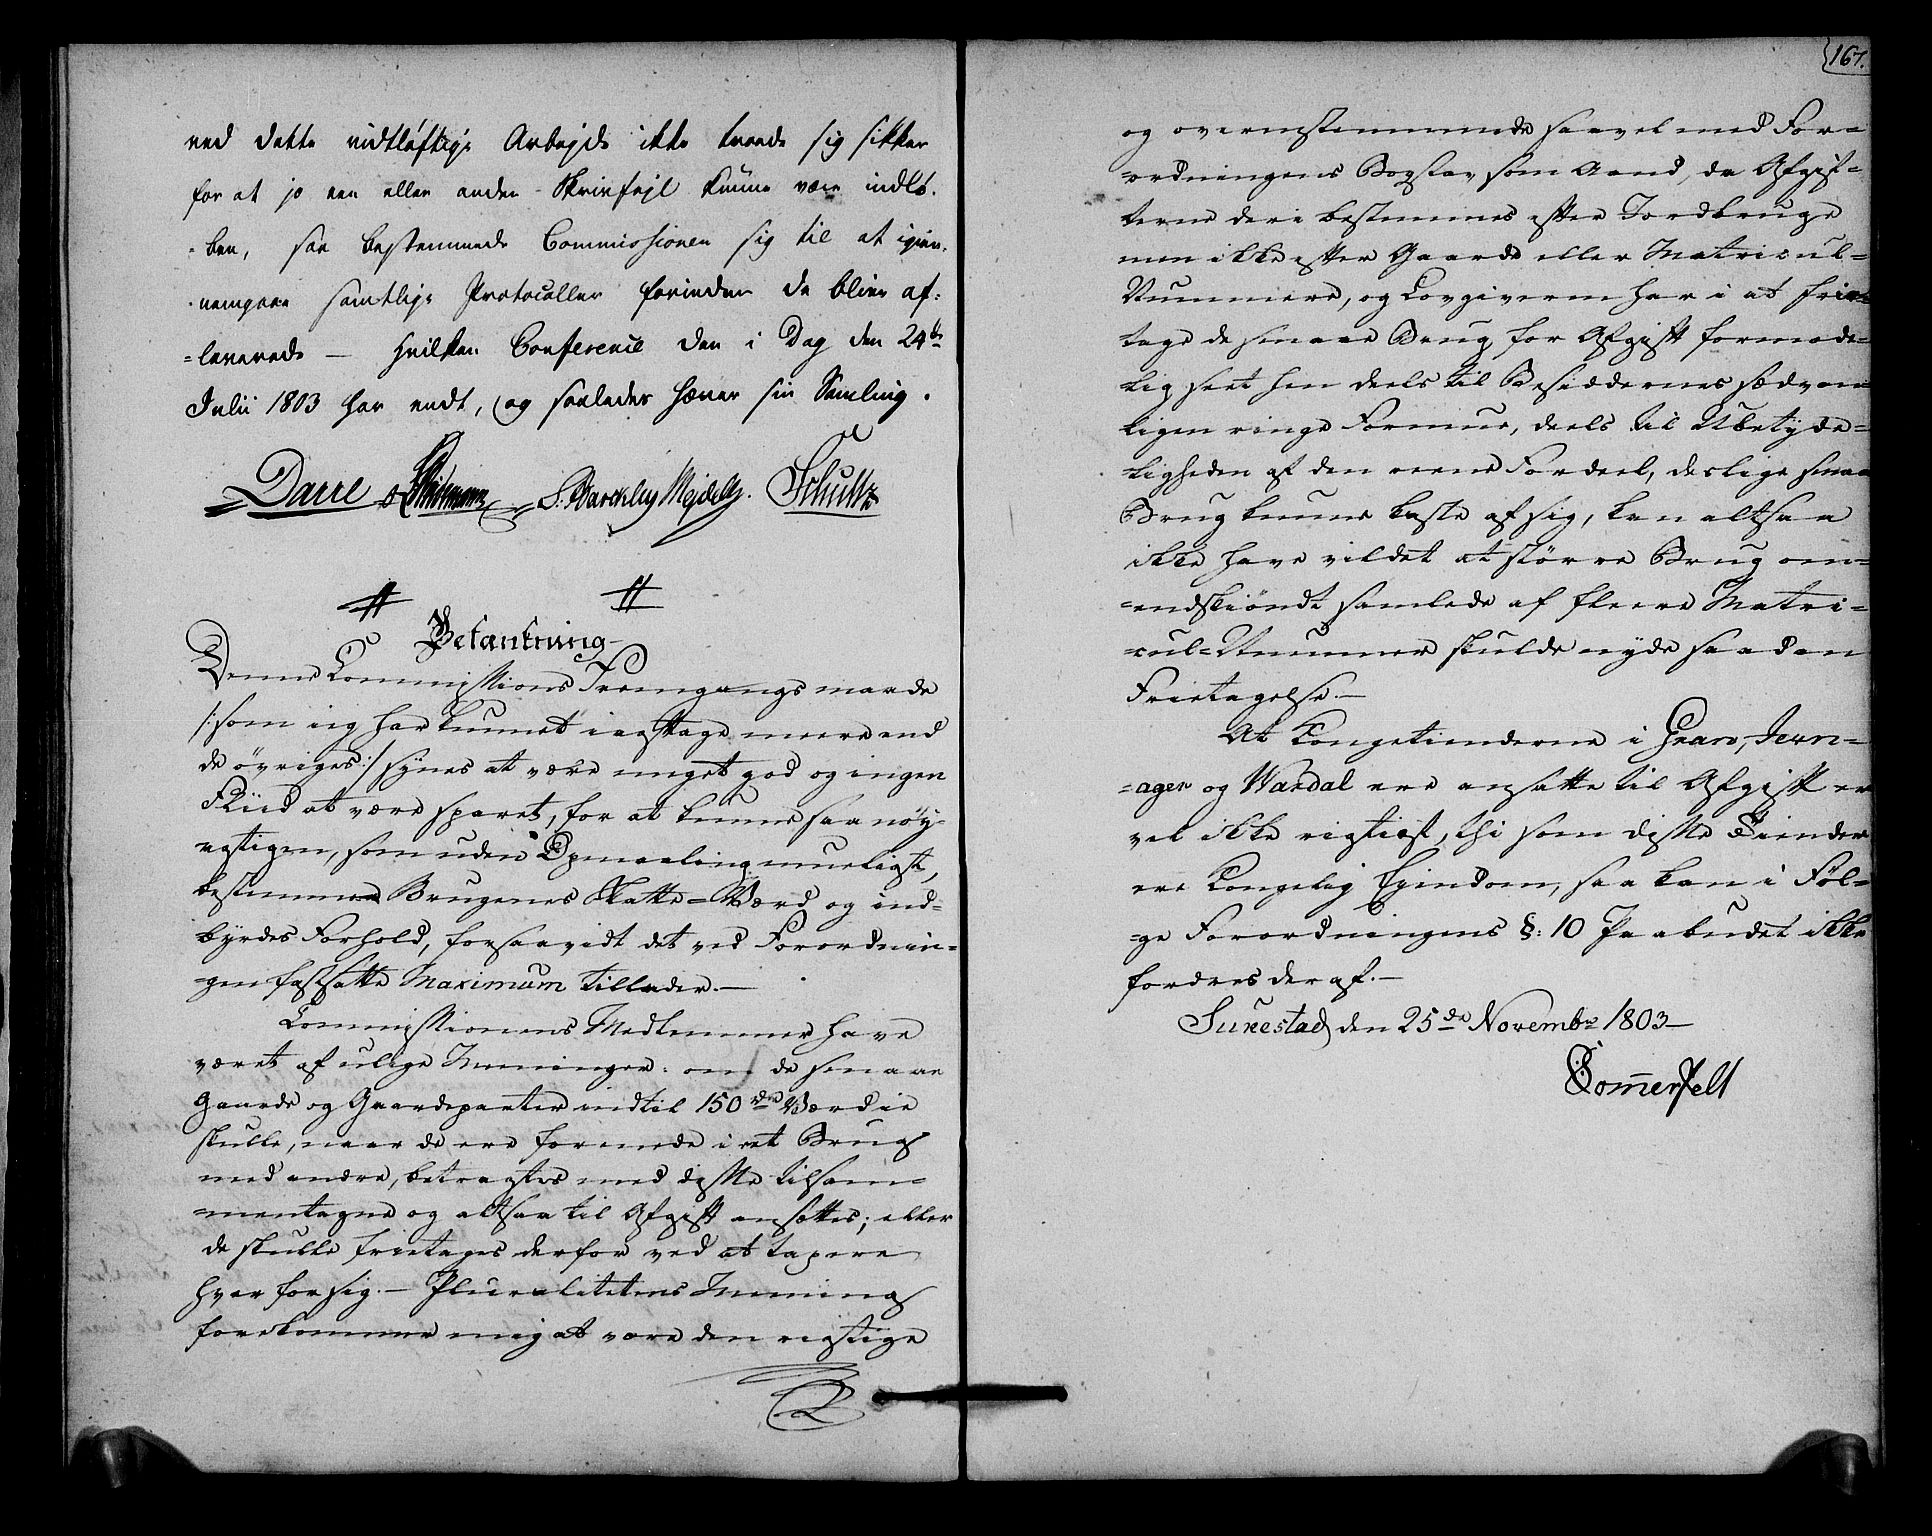 ved dette vidtløftige Arbejde ikke troede sig sikker
for at jo een eller anden Skrivfejl kunne være indlø-
-ben, saa bestemmede Commissionen sig til at igien-
-nemgaae samtlige Protocoller forinden de blive af-
=leverede — hvilken Conferencen i Dag den 24de
Julii 1803 har endt, og saaledes hæver sin Samling.
Daue S. Barckley Mejdell. Schultz
Betænkning
Denne Commissions Fremgangsmaade
/:som jeg har kunnet iagttage meere end
de övriges:/ synes at være meget god og ingen
Fliid at være sparet, for at kunne saa nöy-
agtigen, som uden Opmaaling mueligst,
bestemme Brugenes Skatte=Værd og ind-
byrdes Forhold, forsaavidt det ved Forordnin-
-gen fastsatte Maximum tillader.—
Commissionens Medlemmer have
været af ulige Meninger: om de smaae
Gaarde og Gaardeparter indtil 150 rdr Værdie
skulle, naar de ere forenede i eet Brug
med andre, betragtes med disse tilsam-
=mentagne og altsaa til Afgift ansættes; eller
de skulle frietages derfor ved at taxere
hver for sig.— Pluralitetens Mening
forekommer mig at være den rigtige
167.
og overeenstemmende saavel med For=
=ordningens Bogstav som Aand, da Afgif=
terne deri bestemmes efter Jordbruge
men ikke efter Gaarde eller Matricul=
Nummere, og Lovgiveren har i at frie=
tage de smaae Brug for Afgift formode=
lig seet hen deels til Besiddernes sædvan=
ligen ringe Formue, deels til Ubetyde=
ligheden af den reene Fordeel, deslige smaa
Brug kunne kaste af sig, kan altsaa
ikke have villet at större Brug om=
=endskiöndt samlede af fleere Matri=
=cul=Nummer skulde nyde saadan
Frietagelse.—
At Kongetienderne i Gran, Jevn=
=ager og Wardal ere ansatte til Afgift er
vel ikke rigtigt, thi som disse Tiender
ere Kongelig Eiendom, saa kan i Föl=
=ge Forordningens §: 10 Paabudet ikke
fordres deraf.—
Sukestad den 25de Novembr 1803—
Somerfelt